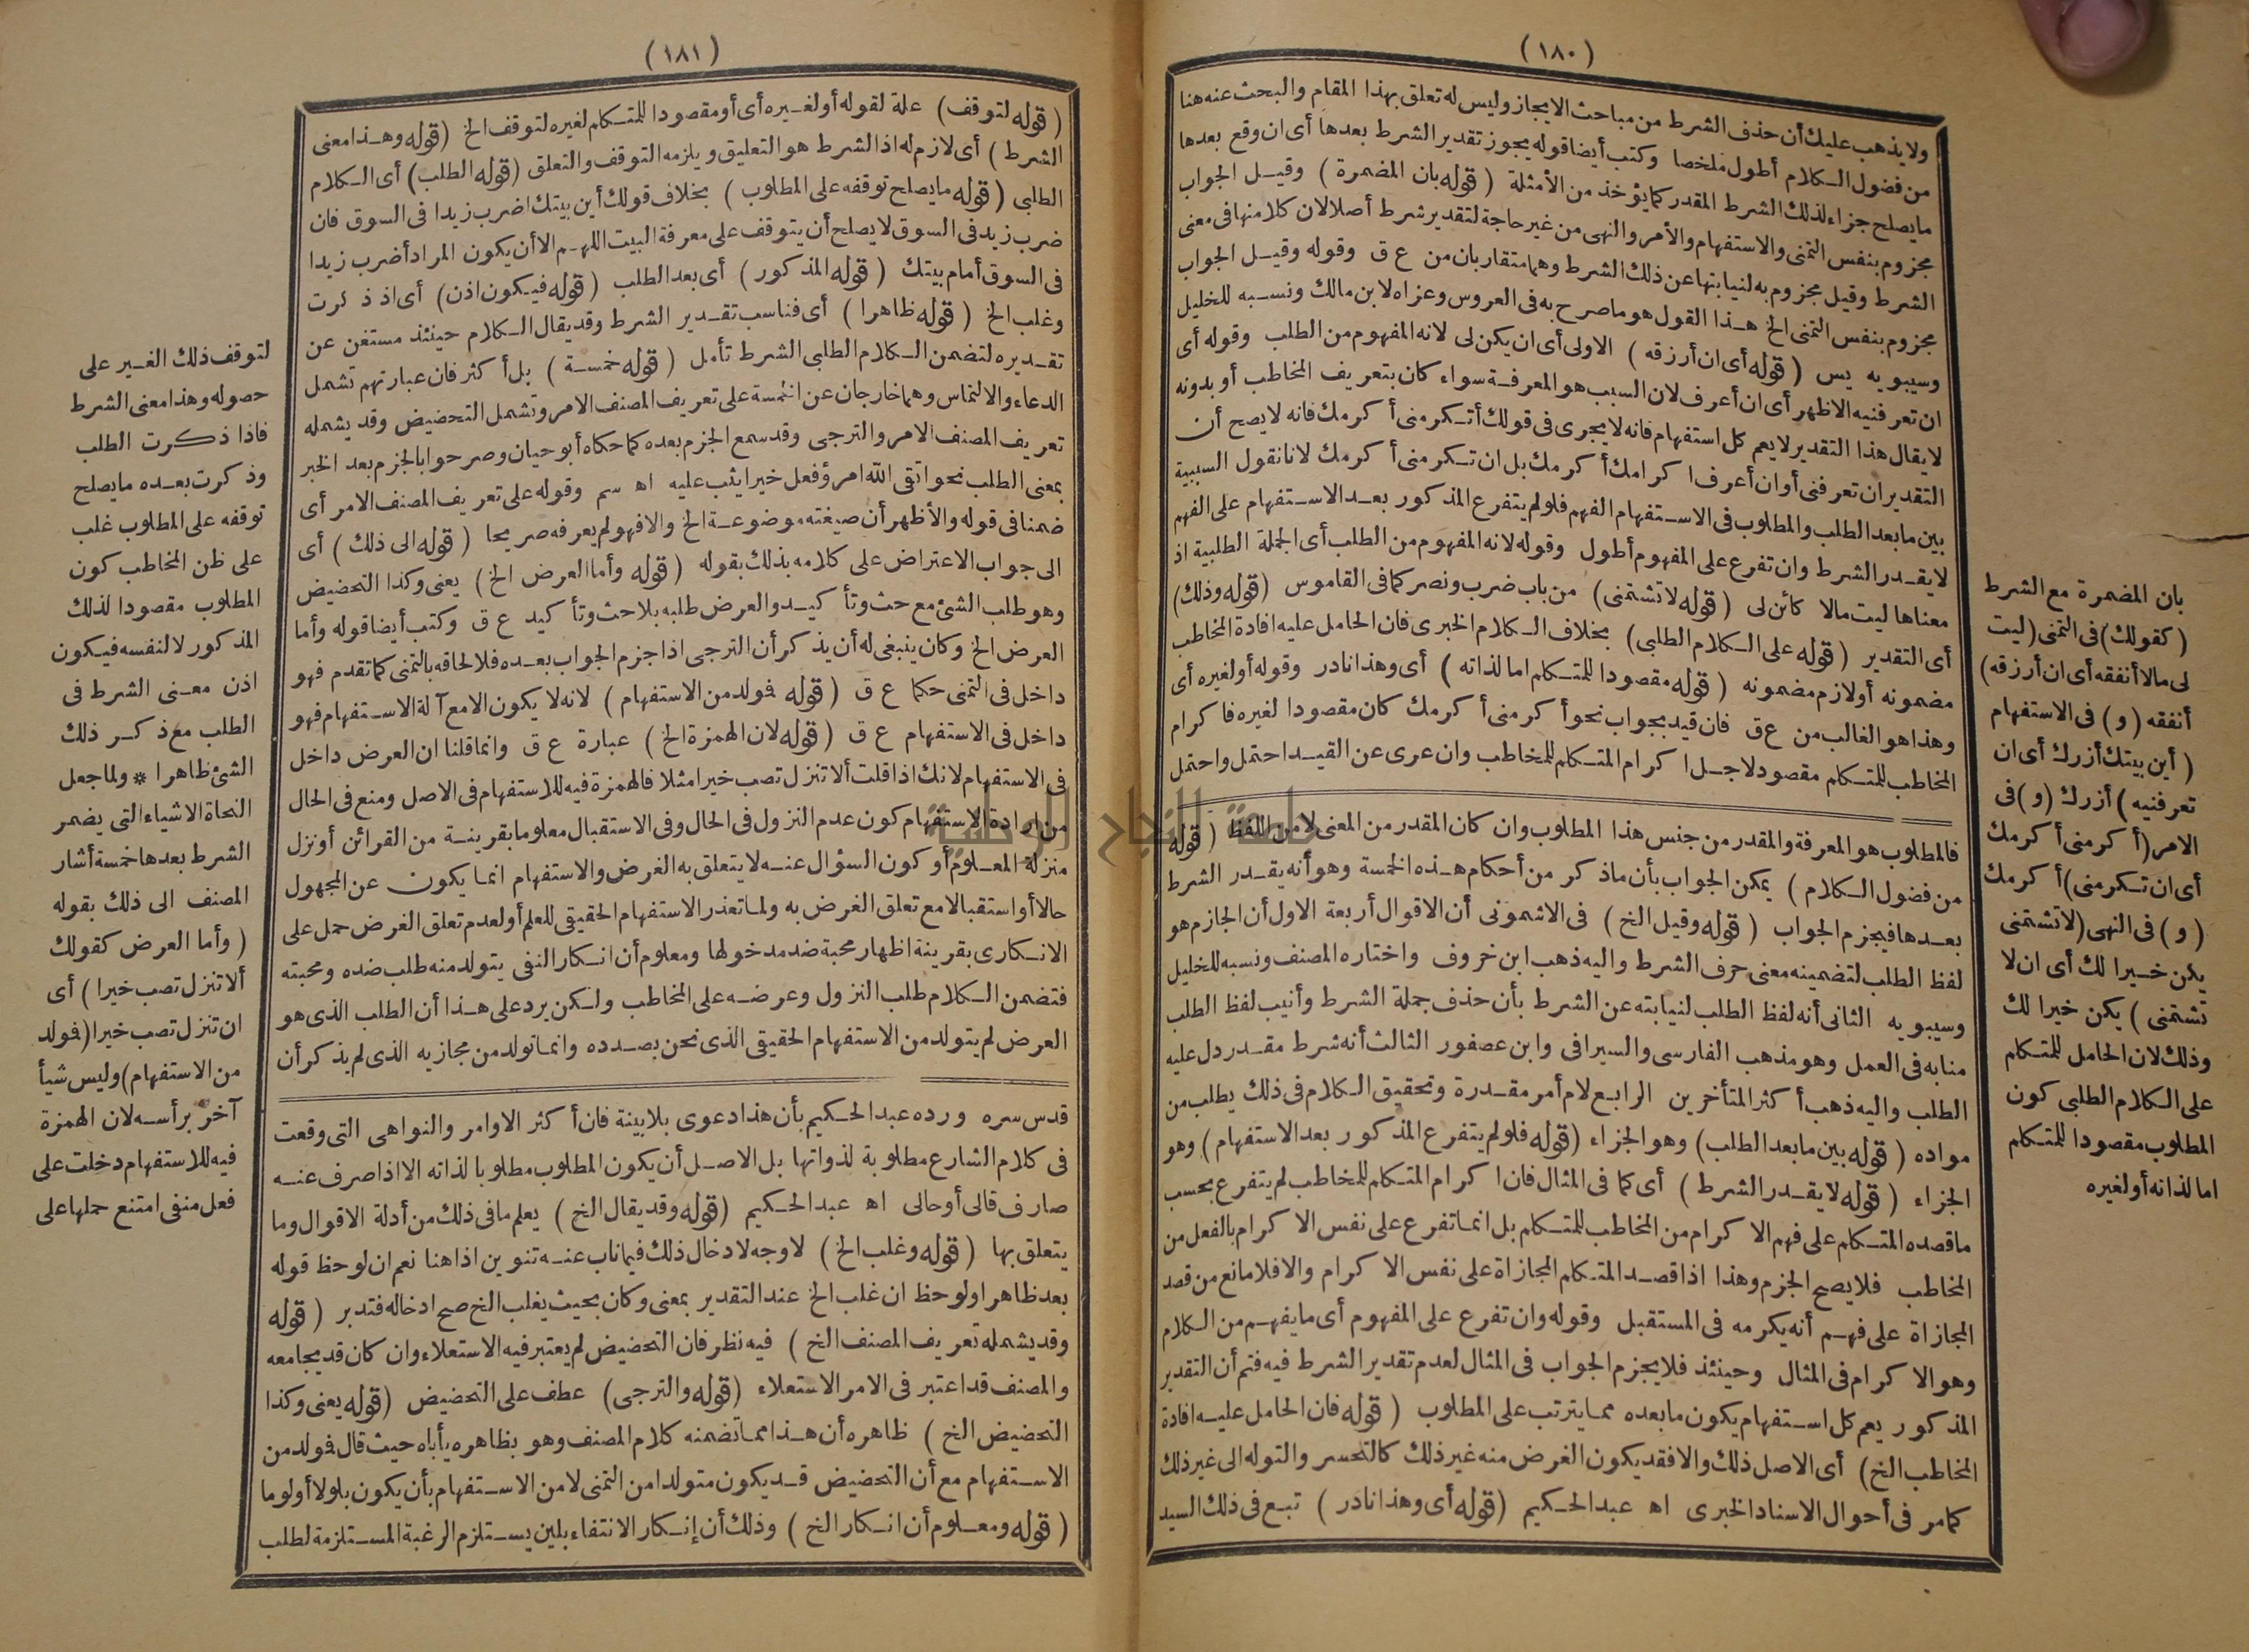 (١٨٠)
ولا يذهب عليك أن حذف الشرط من مباحث الايجاز وليس له تعلق بهذا المقام والبحث عنه هنا
من فضول الكلام أطول ملخصا وكتب أيضا قوله يجوز تقدير الشرط بعدها أى ان وقع بعدها
ما يصلح جزاء لذلك الشرط المقدر كما يؤخذ من الأمثلة (قوله بان المضمرة) وقيل الجواب
مجزوم بنفس التمنى والاستفهام والأمر والنهى من غير حاجة لتقدير شرط أصلا لان كلا منها فى معنى
الشرط وقيل مجزوم به لنيابتها عن ذلك الشرط وهما متقاربان من ع ق وقوله وقيل الجواب
مجزوم بنفس التمنى الخ هذا القول هو ما صرح به فى العروس وعزاه لابن مالك ونسبه للخليل
وسيبويه يس (قوله أى ان أرزقه) الاولى أى ان يكن لى لانه المفهوم من الطلب وقوله أى
ان تعرفنيه الاظهر أى ان أعرف لان السبب هو المعرفة سواء كان بتعريف المخاطب أو بدونه
لا يقال هذا التقدير لا يعم كل استفهام فانه لا يجرى فى قولك أتكرمنى أكرمك فانه لا يصح أن
التقدير ان تعرفنى أو ان أعرف اكرامك أكرمك بل ان تكرمنى أكرمك لانا نقول السببية
بين ما بعد الطلب والمطلوب فى الاستفهام الفهم فلو لم يتفرع المذكور بعد الاستفهام على الفهم
لا يقدر الشرط وان تفرع على المفهوم أطول وقوله لانه المفهوم من الطلب أى الجملة الطلبية اذ
معناها ليت مالا كائن لى (قوله لا تشتمنى) من باب ضرب ونصر كما فى القاموس (قوله وذلك)
أى التقدير (قوله على الكلام الطلبى) بخلاف الكلام الخبرى فان الحامل عليه افادة المخاطب
مضمونه أو لازم مضمونه (قوله مقصودا للمتكلم اما لذاته) أى وهذا نادر وقوله أو لغيره أى
وهذا هو الغالب من ع ق فان قيد بجواب نحو أكرمنى أكرمك كان مقصودا لغيره فا كرام
المخاطب للمتكلم مقصود لاجل اكرام المتكلم للمخاطب وان عرى عن القيد احتمل واحتمل
فالمطلوب هو المعرفة والمقدر من جنس هذا المطلوب وان كان المقدر من المعنى لا من اللفظ (قوله
من فضول الكلام) يمكن الجواب بأن ماذكر من أحكام هذه الخمسة وهو أنه يقدر الشرط
بعدها فيجزم الجواب (قوله وقيل الخ) فى الاشمونى أن الاقوال أربعة الاول أن الجازم هو
لفظ الطلب لتضمينه معنى حرف الشرط واليه ذهب ابن خروف واختاره المصنف ونسبه للخليل
وسيبويه الثانى أنه لفظ الطلب لنيابته عن الشرط بأن حذف جملة الشرط وأنيب لفظ الطلب
منابه فى العمل وهو مذهب الفارسى والسيرافى وابن عصفور الثالث أنه شرط مقدر دل عليه
الطلب واليه ذهب أكثر المتأخرين الرابع لام أمر مقدرة وتحقيق الكلام فى ذلك يطلب من
مواده (قوله بين ما بعد الطلب) وهو الجزاء (قوله فلو لم يتفرع المذكور بعد الاستفهام) وهو
الجزاء (قوله لا يقدر الشرط) أى كما فى المثال فان اكرام المتكلم للمخاطب لم يتفرع بحسب
ما قصده المتكلم على فهم الاكرام من المخاطب للمتكلم بل انما تفرع على نفس الاكرام بالفعل من
المخاطب فلا يصح الجزم وهذا اذا قصد المتكلم المجازاة على نفس الاكرام والا فلا مانع من قصد
المجازاة على فهم أنه يكرمه فى المستقبل وقوله وان تفرع على المفهوم أى ما يفهم من الكلام
وهو الاكرام فى المثال وحينئذ فلا يجزم الجواب فى المثال لعدم تقدير الشرط فيه فتم أن التقدير
المذكور يعم كل استفهام يكون ما بعده مما يترتب على المطلوب (قوله فان الحامل عليه افادة
المخاطب الخ) أى الاصل ذلك والا فقد يكون الغرض منه غير ذلك كالتحسر والتوله الى غير ذلك
كما مر فى أحوال الاسناد الخبرى اه عبد الحكيم (قوله أى وهذا نادر) تبع فى ذلك السيد
بان المضمرة مع الشرط
(كقولك) فى التمنى (ليت
لى مالا أنفقه أى ان أرزقه)
أنفقه (و) فى الاستفهام
(أين بيتك أزرك أى ان
تعرفنيه) أزرك (و) فى
الامر (أكرمنى أكرمك
أى ان تكرمنى) أكرمك
(و) فى النهى (لا تشتمنى
يكن خيرا لك أى ان لا
تشتمنى) يكن خيرا لك
وذلك لان الحامل للمتكلم
على الكلام الطلبى كون
المطلوب مقصودا للمتكلم
اما لذاته أو لغيره
(١٨١)
(قوله لتوقف) علة لقوله أو لغيره أى أو مقصودا للمتكلم لغيره لتوقف الخ (قوله وهذا معنى
الشرط) أى لازم له اذ الشرط هو التعليق ويلزمه التوقف والتعلق (قوله الطلب) أى الكلام
الطلبى (قوله ما يصلح توقفه على المطلوب) بخلاف قولك أين بيتك اضرب زيدا فى السوق فان
ضرب زيد فى السوق لا يصلح أن يتوقف على معرفة البيت اللهم الا أن يكون المراد أضرب زيدا
فى السوق أمام بيتك (قوله المذكور) أى بعد الطلب (قوله فيكون اذن) أى اذ ذكرت
وغلب الخ (قوله ظاهرا) أى فناسب تقدير الشرط وقد يقال الكلام حينئذ مستغن عن
تقديره لتضمن الكلام الطلبى الشرط تأمل (قوله خمسة) بل أكثر فان عبارتهم تشمل
الدعاء والالتماس وهما خارجان عن الخمسة على تعريف المصنف الامر وتشمل التحضيض وقد يشمله
تعريف المصنف الامر والترجى وقد سمع الجزم بعده كما حكاه أبو حيان وصرحوا بالجزم بعد الخبر
بمعنى الطلب نحو اتقى الله امرؤ فعل خيرا يثب عليه اه سم وقوله على تعريف المصنف الامر أى
ضمنا فى قوله والأظهر أن صيغته موضوعة الخ والا فهو لم يعرفه صريحا (قوله الى ذلك) أى
الى جواب الاعتراض على كلامه بذلك بقوله (قوله وأما العرض الخ) يعنى وكذا التحضيض
وهو طلب الشئ مع حث وتأكيد والعرض طلبه بلا حث وتأكيد ع ق وكتب أيضا قوله وأما
العرض الخ وكان ينبغى له أن يذكر أن الترجى اذا جزم الجواب بعده فلا لحاقه بالتمنى كما تقدم فهو
داخل فى التمنى حكما ع ق (قوله فمولد من الاستفهام) لانه لا يكون الا مع آلة الاستفهام فهو
داخل فى الاستفهام ع ق (قوله لان الهمزة الخ) عبارة ع ق وانما قلنا ان العرض داخل
فى الاستفهام لانك اذا قلت ألا تنزل تصب خيرا مثلا فالهمزة فيه للاستفهام فى الاصل ومنع فى الحال
من ارادة الاستفهام كون عدم النزول فى الحال وفى الاستقبال معلوما بقرينة من القرائن أو نزل
منزلة المعلوم أو كون السؤال عنه لا يتعلق به الغرض والاستفهام انما يكون عن المجهول
حالا أو استقبالا مع تعلق الغرض به ولما تعذر الاستفهام الحقيقى للعلم أو لعدم تعلق الغرض حمل على
الانكارى بقرينة اظهار محبة ضد مدخولها ومعلوم أن انكار النفى يتولد منه طلب ضده ومحبته
فتضمن الكلام طلب النزول وعرضه على المخاطب ولكن يرد على هذا أن الطلب الذى هو
العرض لم يتولد من الاستفهام الحقيقى الذى نحن بصدده وانما تولد من مجازيه الذى لم يذكر أن
قدس سره ورده عبد الحكيم بأن هذا دعوى بلا بينة فان أكثر الاوامر والنواهى التى وقعت
فى كلام الشارع مطلوبة لذواتها بل الاصل أن يكون المطلوب مطلوبا لذاته الا اذا صرف عنه
صارف قالى أو حالى اه عبد الحكيم (قوله وقد يقال الخ) يعلم ما فى ذلك من أدلة الاقوال وما
يتعلق بها (قوله وغلب الخ) لا وجه لادخال ذلك فيما ناب عنه تنوين اذا هنا نعم ان لوحظ قوله
بعد ظاهرا ولوحظ ان غلب الخ عند التقدير بمعنى وكان بحيث يغلب الخ صح ادخاله فتدبر (قوله
وقد يشمله تعريف المصنف الخ) فيه نظر فان التحضيض لم يعتبر فيه الاستعلاء وان كان قد يجامعه
والمصنف قد اعتبر فى الامر الاستعلاء (قوله والترجى) عطف على التحضيض (قوله يعنى وكذا
التحضيض الخ) ظاهره أن هذا مما تضمنه كلام المصنف وهو بظاهره يأباه حيث قال فمولد من
الاستفهام مع أن التحضيض قد يكون متولدا من التمنى لا من الاستفهام بأن يكون بلولا أو لوما
(قوله ومعلوم أن انكار الخ) وذلك أن إنكار الانتفاء بلين يستلزم الرغبة المستلزمة لطلب
لتوقف ذلك الغير على
حصوله وهذا معنى الشرط
فاذا ذكرت الطلب
وذكرت بعده ما يصلح
توقفه على المطلوب غلب
على ظن المخاطب كون
المطلوب مقصودا لذلك
المذكور لا لنفسه فيكون
اذن معنى الشرط فى
الطلب مع ذكر ذلك
الشئ ظاهرا * ولما جعل
النحاة الاشياء التى يضمر
الشرط بعدها خمسة أشار
المصنف الى ذلك بقوله
(وأما العرض كقولك
ألا تنزل تصب خيرا) أى
ان تنزل تصب خيرا (فمولد
من الاستفهام) وليس شيأ
آخر برأسه لان الهمزة
فيه للاستفهام دخلت على
فعل منفى امتنع حملها على